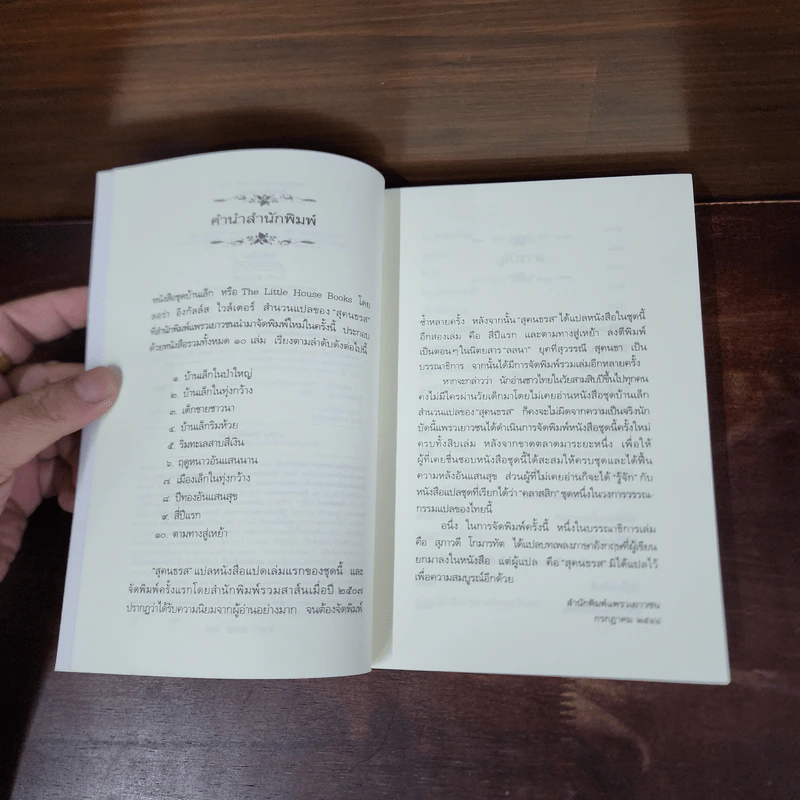 คำนำสำนักพิมพ์
หนังสือชุดบ้านเล็ก หรือ The Little House Books โดย
ลอร่า อิงกัลล์ส ไวล์เดอร์ สำนวนแปลของ "สุคนธรส"
ที่สำนักพิมพ์แพรวเยาวชนนำมาจัดพิมพ์ใหม่ในครั้งนี้ ประกอบ
ด้วยหนังสือรวมทั้งหมด ๑๐ เล่ม เรียงตามลำดับดังต่อไปนี้
๑. บ้านเล็กในป่าใหญ่
๒. บ้านเล็กในทุ่งกว้าง
๓. เด็กชายชาวนา
๔. บ้านเล็กริมห้วย
๕. ริมทะเลสาบสีเงิน
๖. ฤดูหนาวอันแสนนาน
๗. เมืองเล็กในทุ่งกว้าง
๘. ปีทองอันแสนสุข
๙. สี่ปีแรก
๑๐. ตามทางสู่เหย้า
"สุคนธรส" แปลหนังสือแปดเล่มแรกของชุดนี้ และ
จัดพิมพ์ครั้งแรกโดยสำนักพิมพ์รวมสาส์นเมื่อปี ๒๕๐๗
ปรากฏว่าได้รับความนิยมจากผู้อ่านอย่างมาก จนต้องจัดพิมพ์
ซ้ำหลายครั้ง หลังจากนั้น "สุคนธรส" ได้แปลหนังสือในชุดนี้
อีกสองเล่ม คือ สี่ปีแรก และตามทางสู่เหย้า ลงตีพิมพ์
เป็นตอนๆ ในนิตยสาร "ลลนา" ยุคที่สุวรรณี สุคนธา เป็น
บรรณาธิการ จากนั้นได้มีการจัดพิมพ์รวมเล่มอีกหลายครั้ง
หากจะกล่าวว่า นักอ่านชาวไทยในวัยสามสิบปีขึ้นไปทุกคน
คงไม่มีใครผ่านวัยเด็กมาโดยไม่เคยอ่านหนังสือชุดบ้านเล็ก
สำนวนแปลของ "สุคนธรส" ก็คงจะไม่ผิดจากความเป็นจริงนัก
บัดนี้แพรวเยาวชนได้ดำเนินการจัดพิมพ์หนังสือชุดนี้ครั้งใหม่
ครบทั้งสิบเล่ม หลังจากขาดตลาดมาระยะหนึ่ง เพื่อให้
ผู้ที่เคยชื่นชอบหนังสือชุดนี้ได้สะสมให้ครบชุดและได้ฟื้น
ความหลังอันแสนสุข ส่วนผู้ที่ไม่เคยอ่านก็จะได้ "รู้จัก" กับ
หนังสือแปลชุดที่เรียกได้ว่า "คลาสสิก" ชุดหนึ่งในวงการวรรณ-
กรรมแปลของไทยนี้
อนึ่ง ในการจัดพิมพ์ครั้งนี้ หนึ่งในบรรณาธิการเล่ม
คือ สุภาวดี โกมารทัต ได้แปลบทเพลงภาษาอังกฤษที่ผู้เขียน
ยกมาลงในหนังสือ แต่ผู้แปล คือ "สุคนธรส" มิได้แปลไว้
เพื่อความสมบูรณ์อีกด้วย
สำนักพิมพ์แพรวเยาวชน
กรกฎาคม